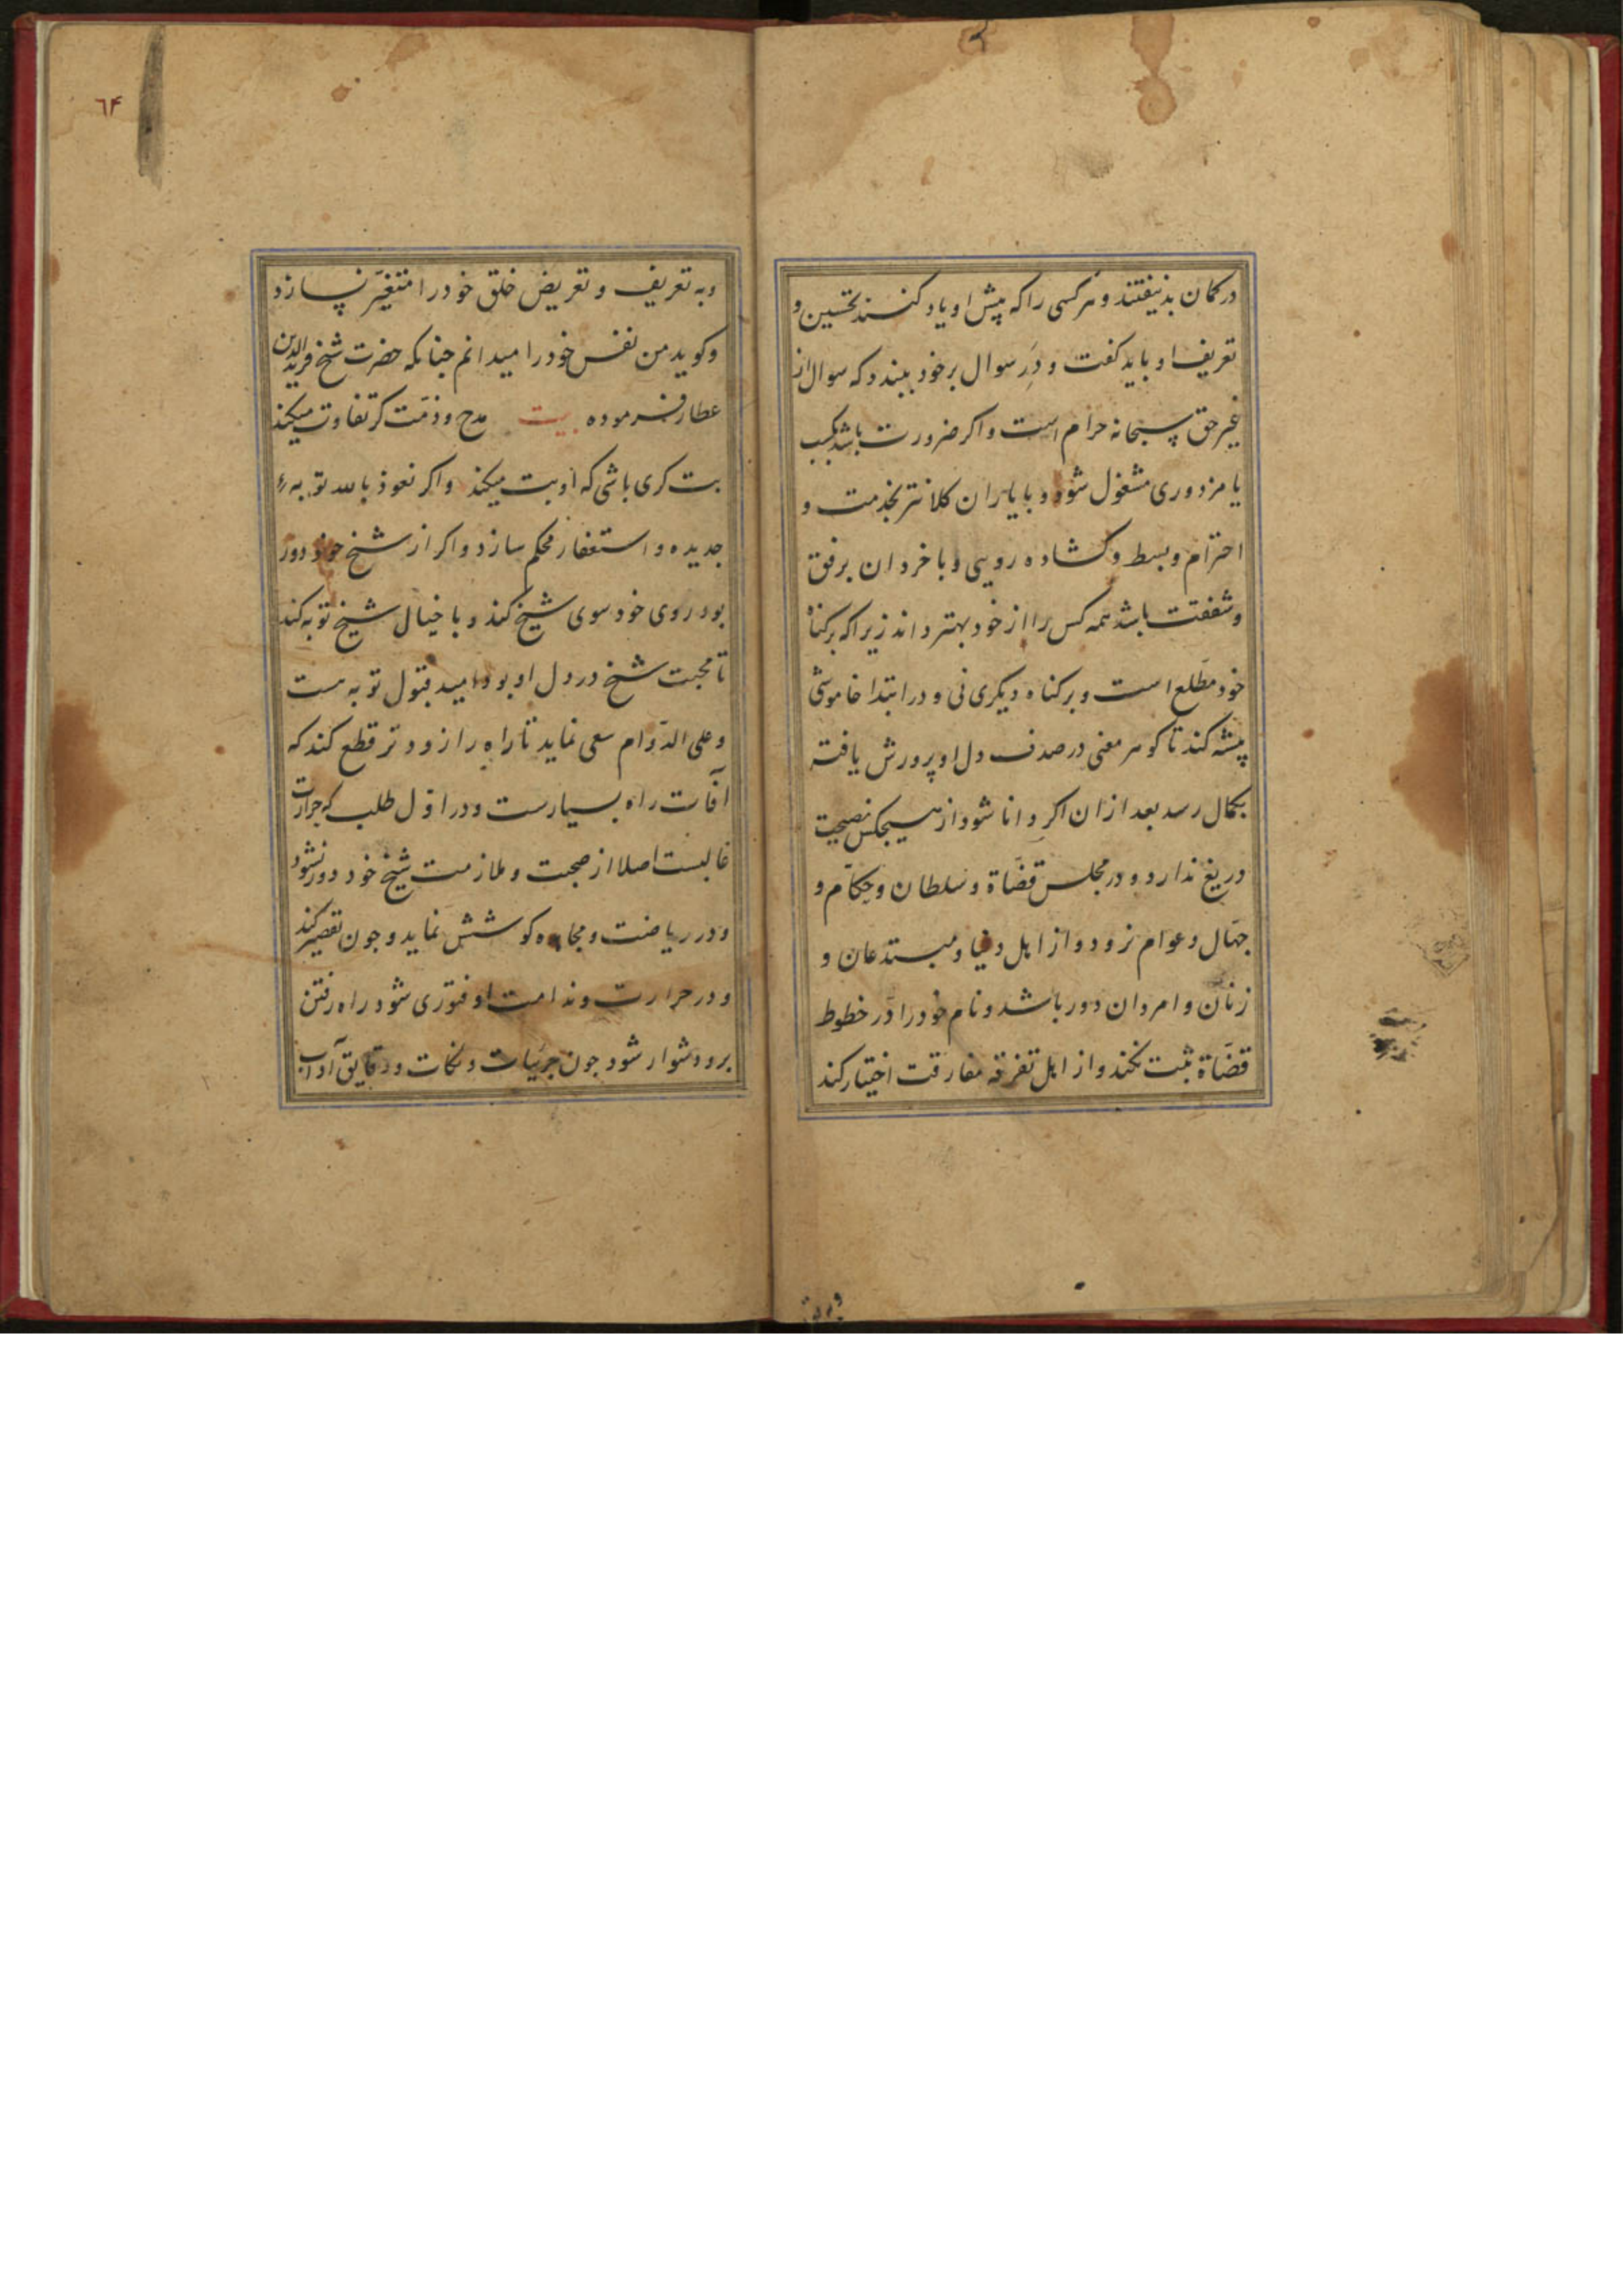 در کمان بد نیفتند و هر کسی را که پیش او یاد کنند تحسین و
تعریف او باید کفت و درِ سوال بر خود ببندد که سوال از
غیر حق سبحانه حرام است و اکر ضرورت باشد بکسب
یا مزدوری مشغول شود و با یاران کلانتر بخدمت و
احترام و بسط و کشاده رویی و با خردان برفق
و شفقت باشد همه کس را از خود بهتر داند زیرا که بر کناه
خود مطّلع است و بر کناه دیکری نی و در ابتدا خاموشی
پیشه کند تا کوهر معنی در صدف دل او پرورش یافته
بکمال رسد بعد از ان اکر دانا شود از هیچکس نصیحت
دریغ ندارد و در مجلس قضّاة و سلطان و حکّام و
جهّال و عوام نرود و از اهل دنیا و مبتدعان و
زنان و امردان دور باشد و نام خود را در خطوط
قضّاة ثبت نکند و از اهل تفرقه مفارقت اختیار کند
و به تعریف و تعریض خلق خود را متغیّر نسازد
و کوید من نفس خود را میدانم جنانکه حضرت شیخ فرید الدّین
عطار فرموده بیت مدح و ذمّت کر تفاوت میکند
بت کری باشی که او بت میکند و اکر نعوذ بالله توبهٔ
جدیده و استغفار محکم سازد و اکر از شیخ خود دور
بود روی خود سوی شیخ کند و با خیال شیخ توبه کند
تا محبت شیخ در دل او بود امید قبول توبه هست
و علی الدّوام سعی نماید تا راه را زودتر قطع کند که
آفات راه بسیارست و در اوّل طلب که حرارت
غالبست اصلا از صحبت و ملازمت شیخ خود دور نشود
و در ریاضت و مجاهده کوشش نماید و جون تقصیر کند
و در حرارت و ندامت او فتوری شود راه رفتن
برو دشوار شود جون جزئیات و نکات و دقایق آداب
و به تع
٦۴